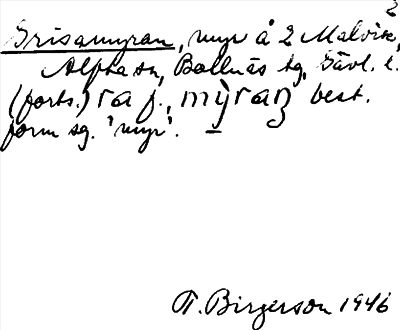 2
Grisamyran, myr å 2 Malvik,
Alphasn, Bollnäs tg, Gävl. l.
(forts.) ra f., mỳraṉ best.
form sg. 'myr'.
T. Birgerson 1946